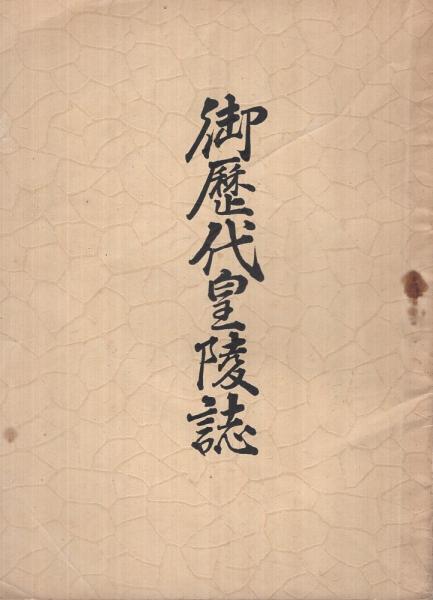 御歴代皇陵誌